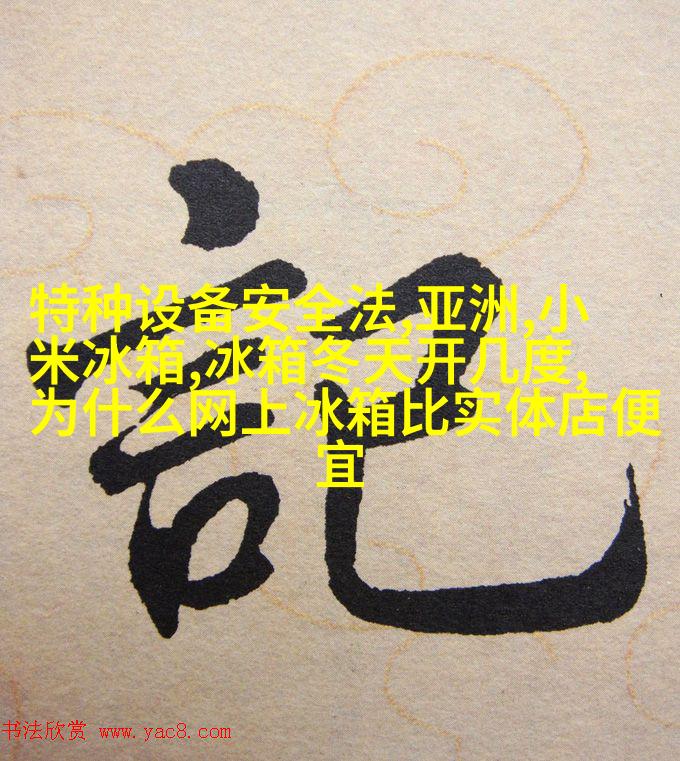 記
特种设备安全法,亚洲,小
米冰箱,冰箱冬天开几度,
为什么网上冰箱比实体店便
宜
书法欣赏 www.yac8.com